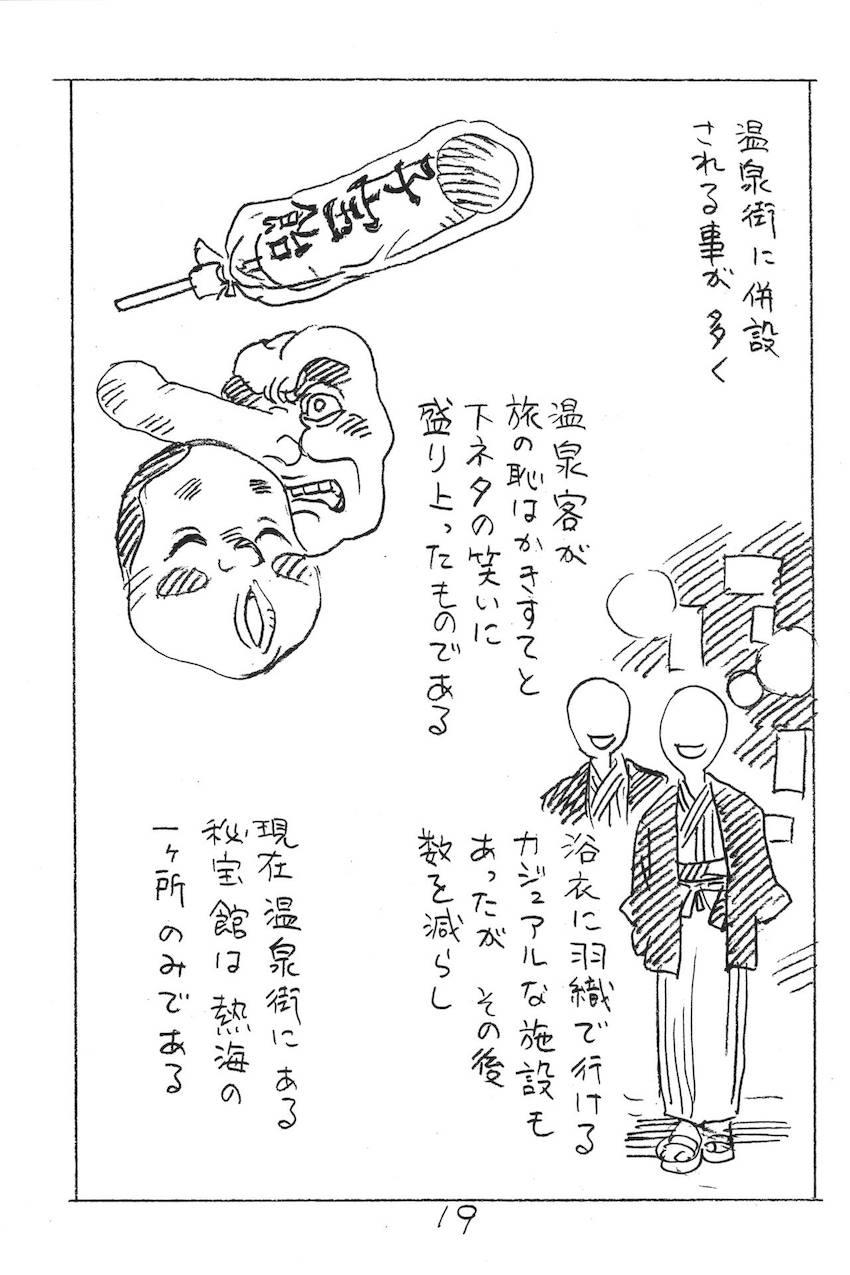 温泉街に併設
される事が多く
子宝飴
温泉客が
旅の恥はかきすてと
下ネタの笑いに
盛り上ったものである
浴衣に羽織で行ける
カジュアルな施設も
あったが その後
数を減らし
現在 温泉街にある
秘宝館は 熱海の
一ヶ所のみである
19